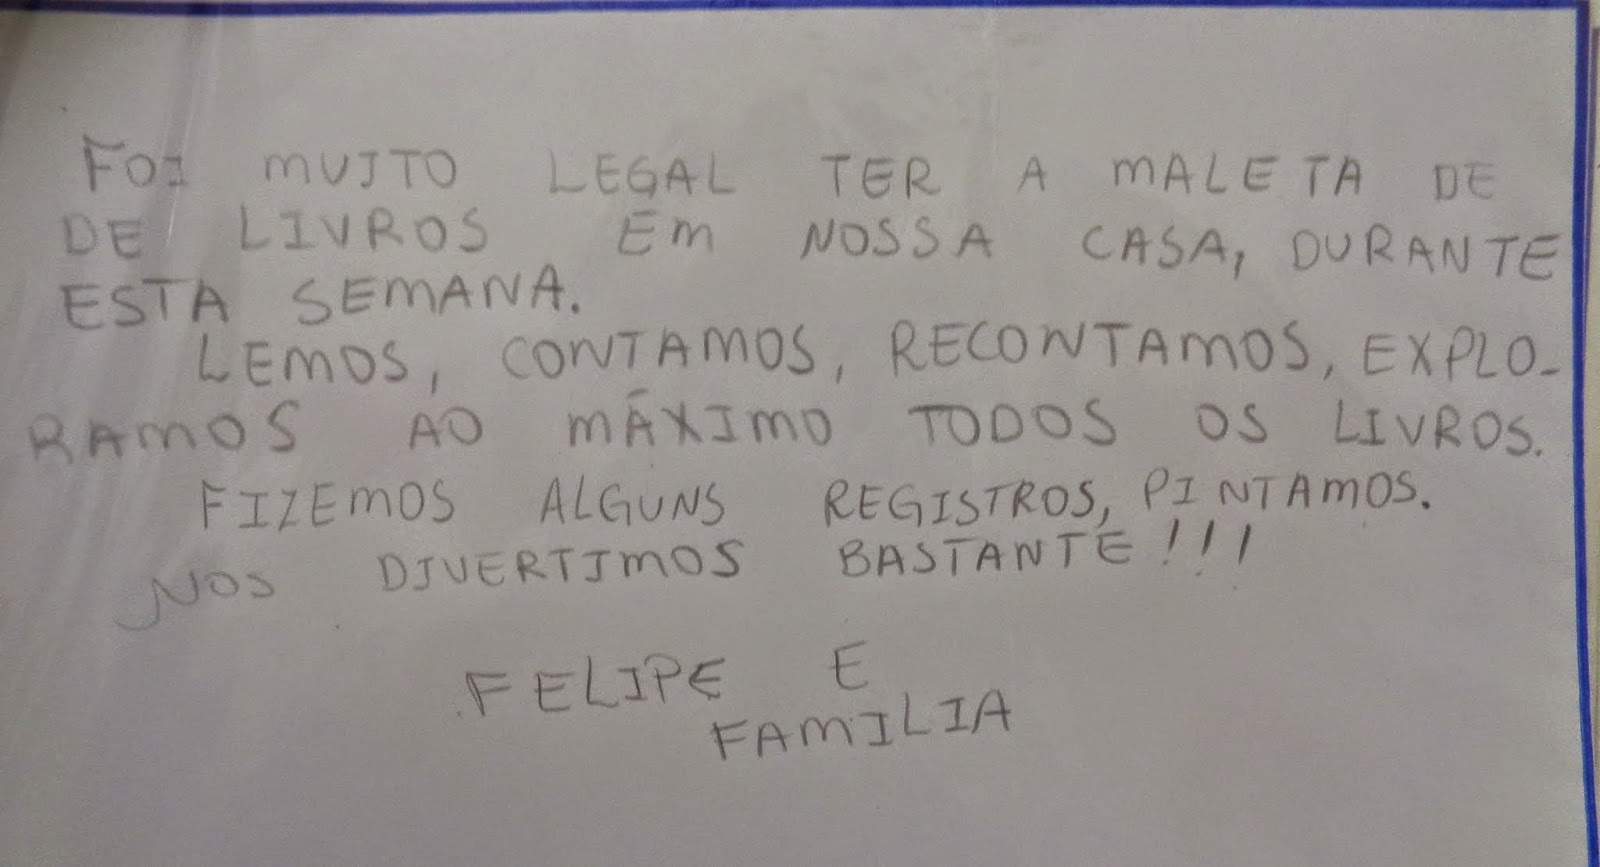 FOI MUITO LEGAL TER A MALETA DE
DE LIVROS EM NOSSA CASA, DURANTE
ESTA SEMANA.
LEMOS, CONTAMOS, RECONTAMOS, EXPLO-
RAMOS AO MÁXIMO TODOS OS LIVROS.
FIZEMOS ALGUNS REGISTROS, PINTAMOS.
NOS DIVERTIMOS BASTANTE!!!
FELIPE E
FAMILIA